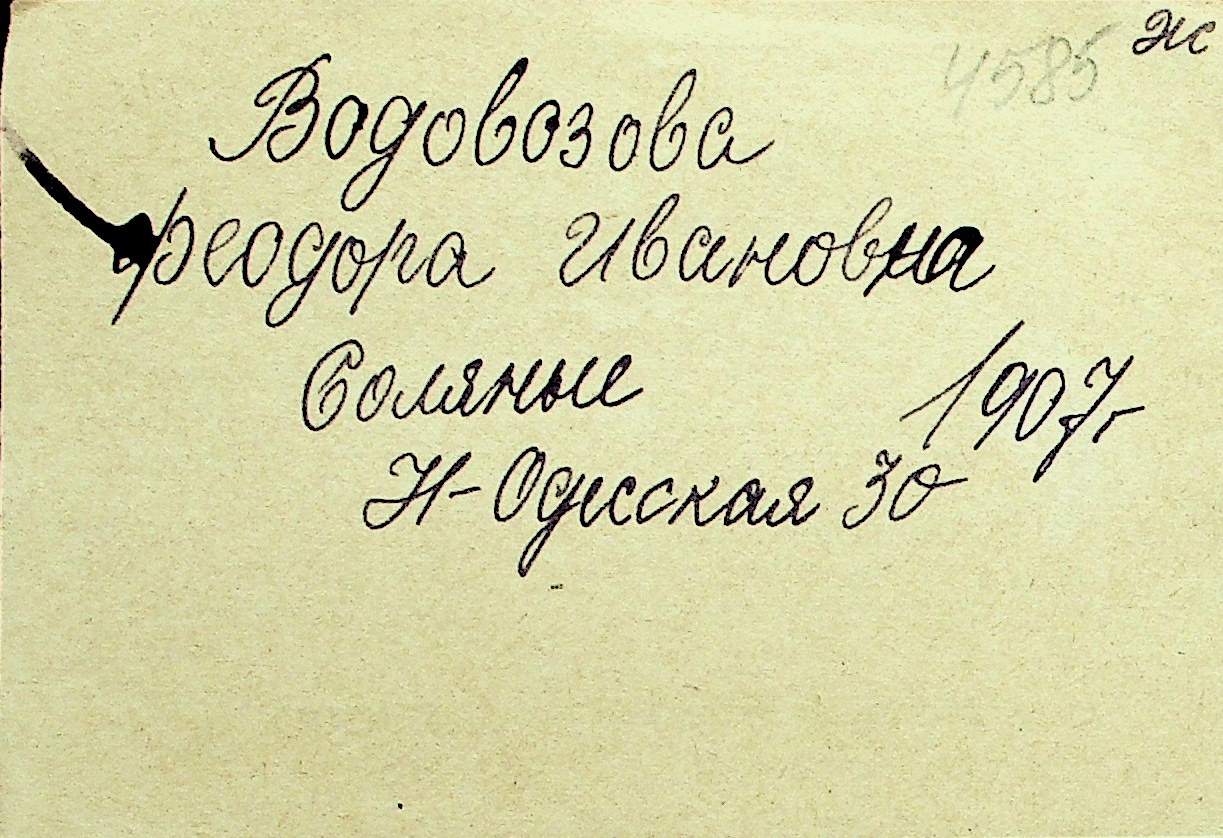 ж
4585
Водовозова
Феодора Ивановна
Соляные 1907г
Н-Одесская 30